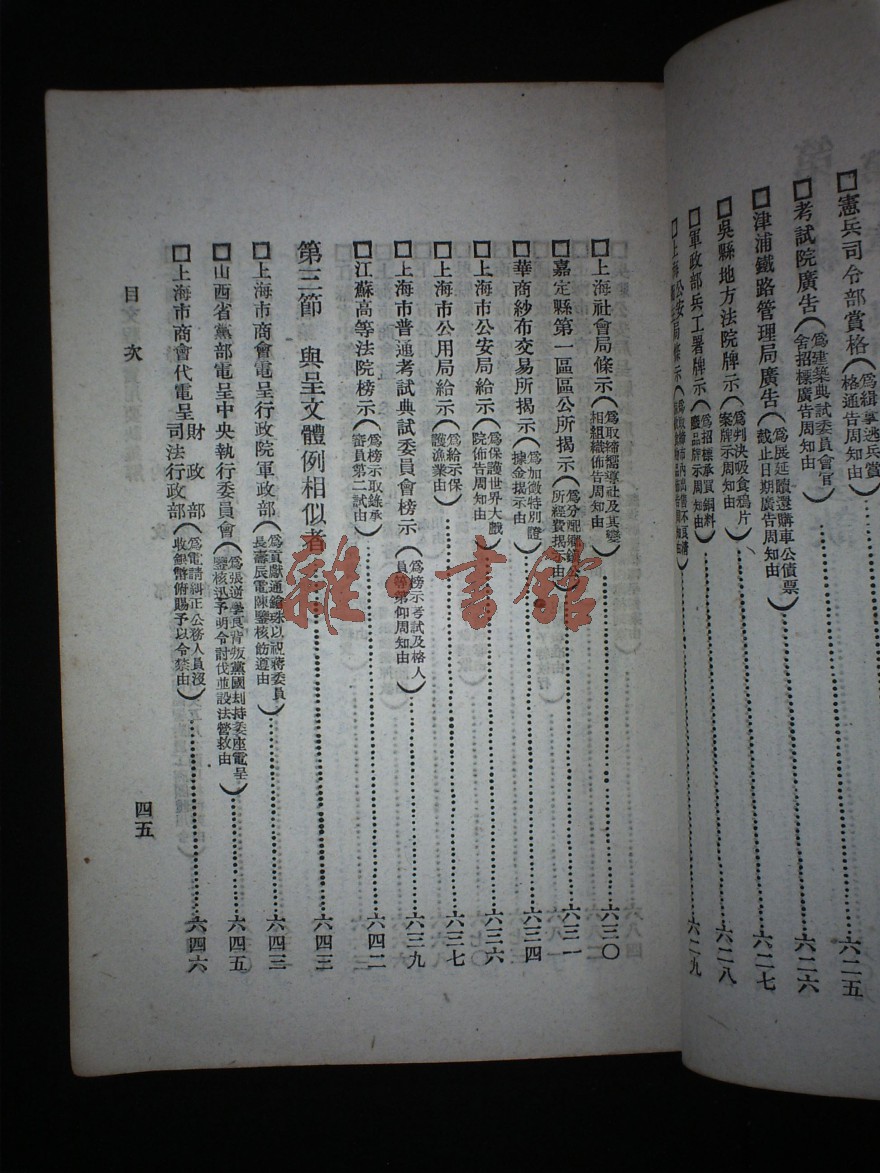 □憲兵司令部賞格（為緝事逃兵賞格通告周知由）……六二五
□考試院廣告（為建築典試委員會官舍招標廣告周知由）……六二六
□津浦鐵路管理局廣告（為展延贖還購車公債票截止日期廣告周知由）……六二七
□吳縣地方法院牌示（為判決吸食鴉片案牌示周知由）……六二八
□軍政部兵工署牌示（為招標承買銅料廢品牌示周知由）
□上海公安局條示……六二九
□上海社會局條示（為取締嚮導社及其變相組織佈告周知由）……六三〇
□嘉定縣第一區區公所揭示（為分配鄉鎮公所經費揭示由）……六三一
□華商紗布交易所揭示（為加徵特別證據金揭示由）……六三四
□上海市公安局給示（為保護世界大戲院佈告周知由）……六三六
□上海市公用局給示（為給示保護漁業由）……六三七
□上海市普通考試典試委員會榜示（為榜示考試及格人員等第仰周知由）……六三九
□江蘇高等法院榜示（為榜示取錄承審員第二試由）……六四二
第三節　與呈文體例相似者……六四三
□上海市商會電呈行政院軍政部（為貢獻通鎗珠以祝蔣委員長壽辰電陳鑒核飭遵由）……六四三
□山西省黨部電呈中央執行委員會（為張逆學良背叛黨國刧持委座電呈鑒核迅予明令討伐並設法營救由）……六四五
□上海市商會代電呈財政部司法行政部（為電請糾正公務人員沒收銀幣俯賜予以令禁由）……六四六
目次
四五
雜·書館